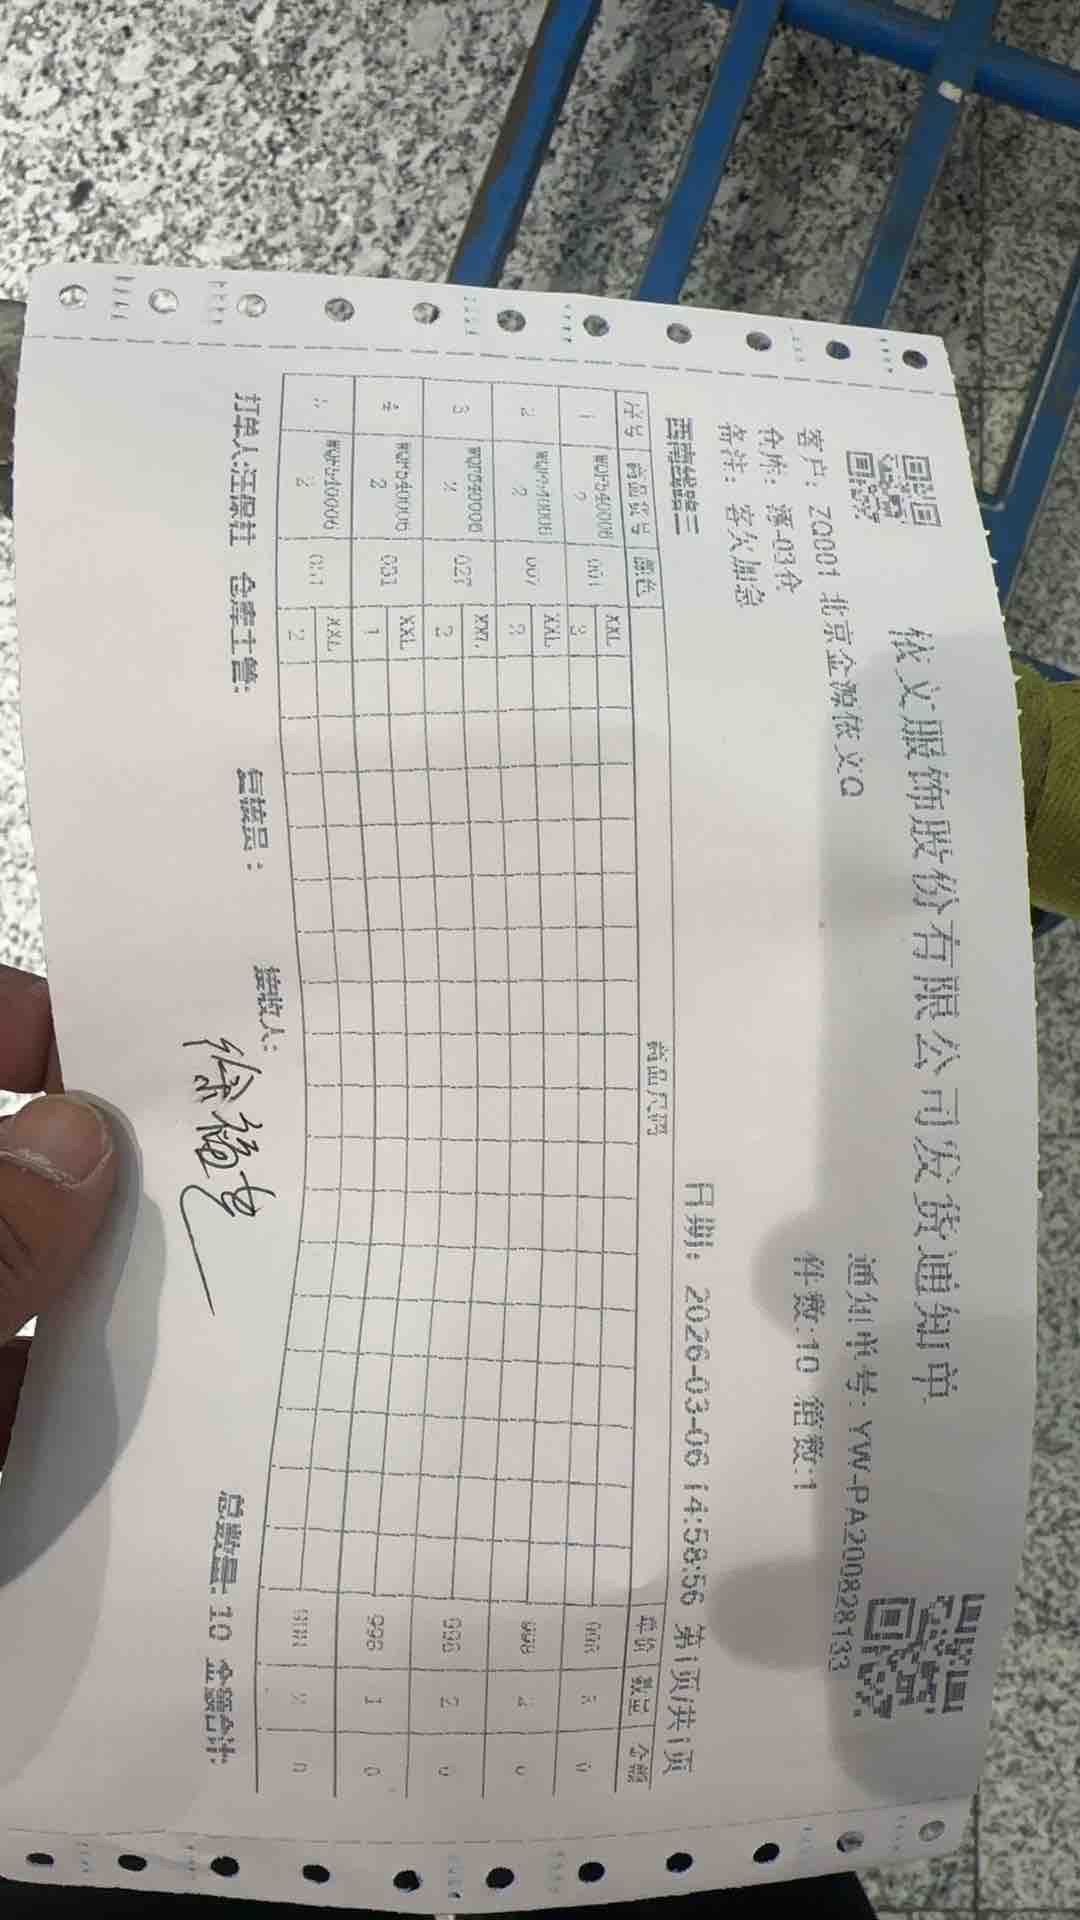 依文服饰股份有限公司发货通知单
客户: ZQ001 北京企源依文Q 通知单号: YW-PA200828133
仓库: 漂-03仓 件数:10 箱数:1
备注: 客欠加急
西南线路三 日期: 2026-03-06 14:58:56 第1页/共1页
序号 商品款号 颜色 商品尺码 单价 数量 金额
1 2 001 XXL 3 998 3 0
2 2 007 XXL 2 998 2 0
3 2 027 XXL 2 998 2 0
4 2 031 XXL 1 998 1 0
5 2 051 XXL 2 2 0
打单人:江保社 仓库主管: 复核员: 接收人: 总数量: 10 金额合计: